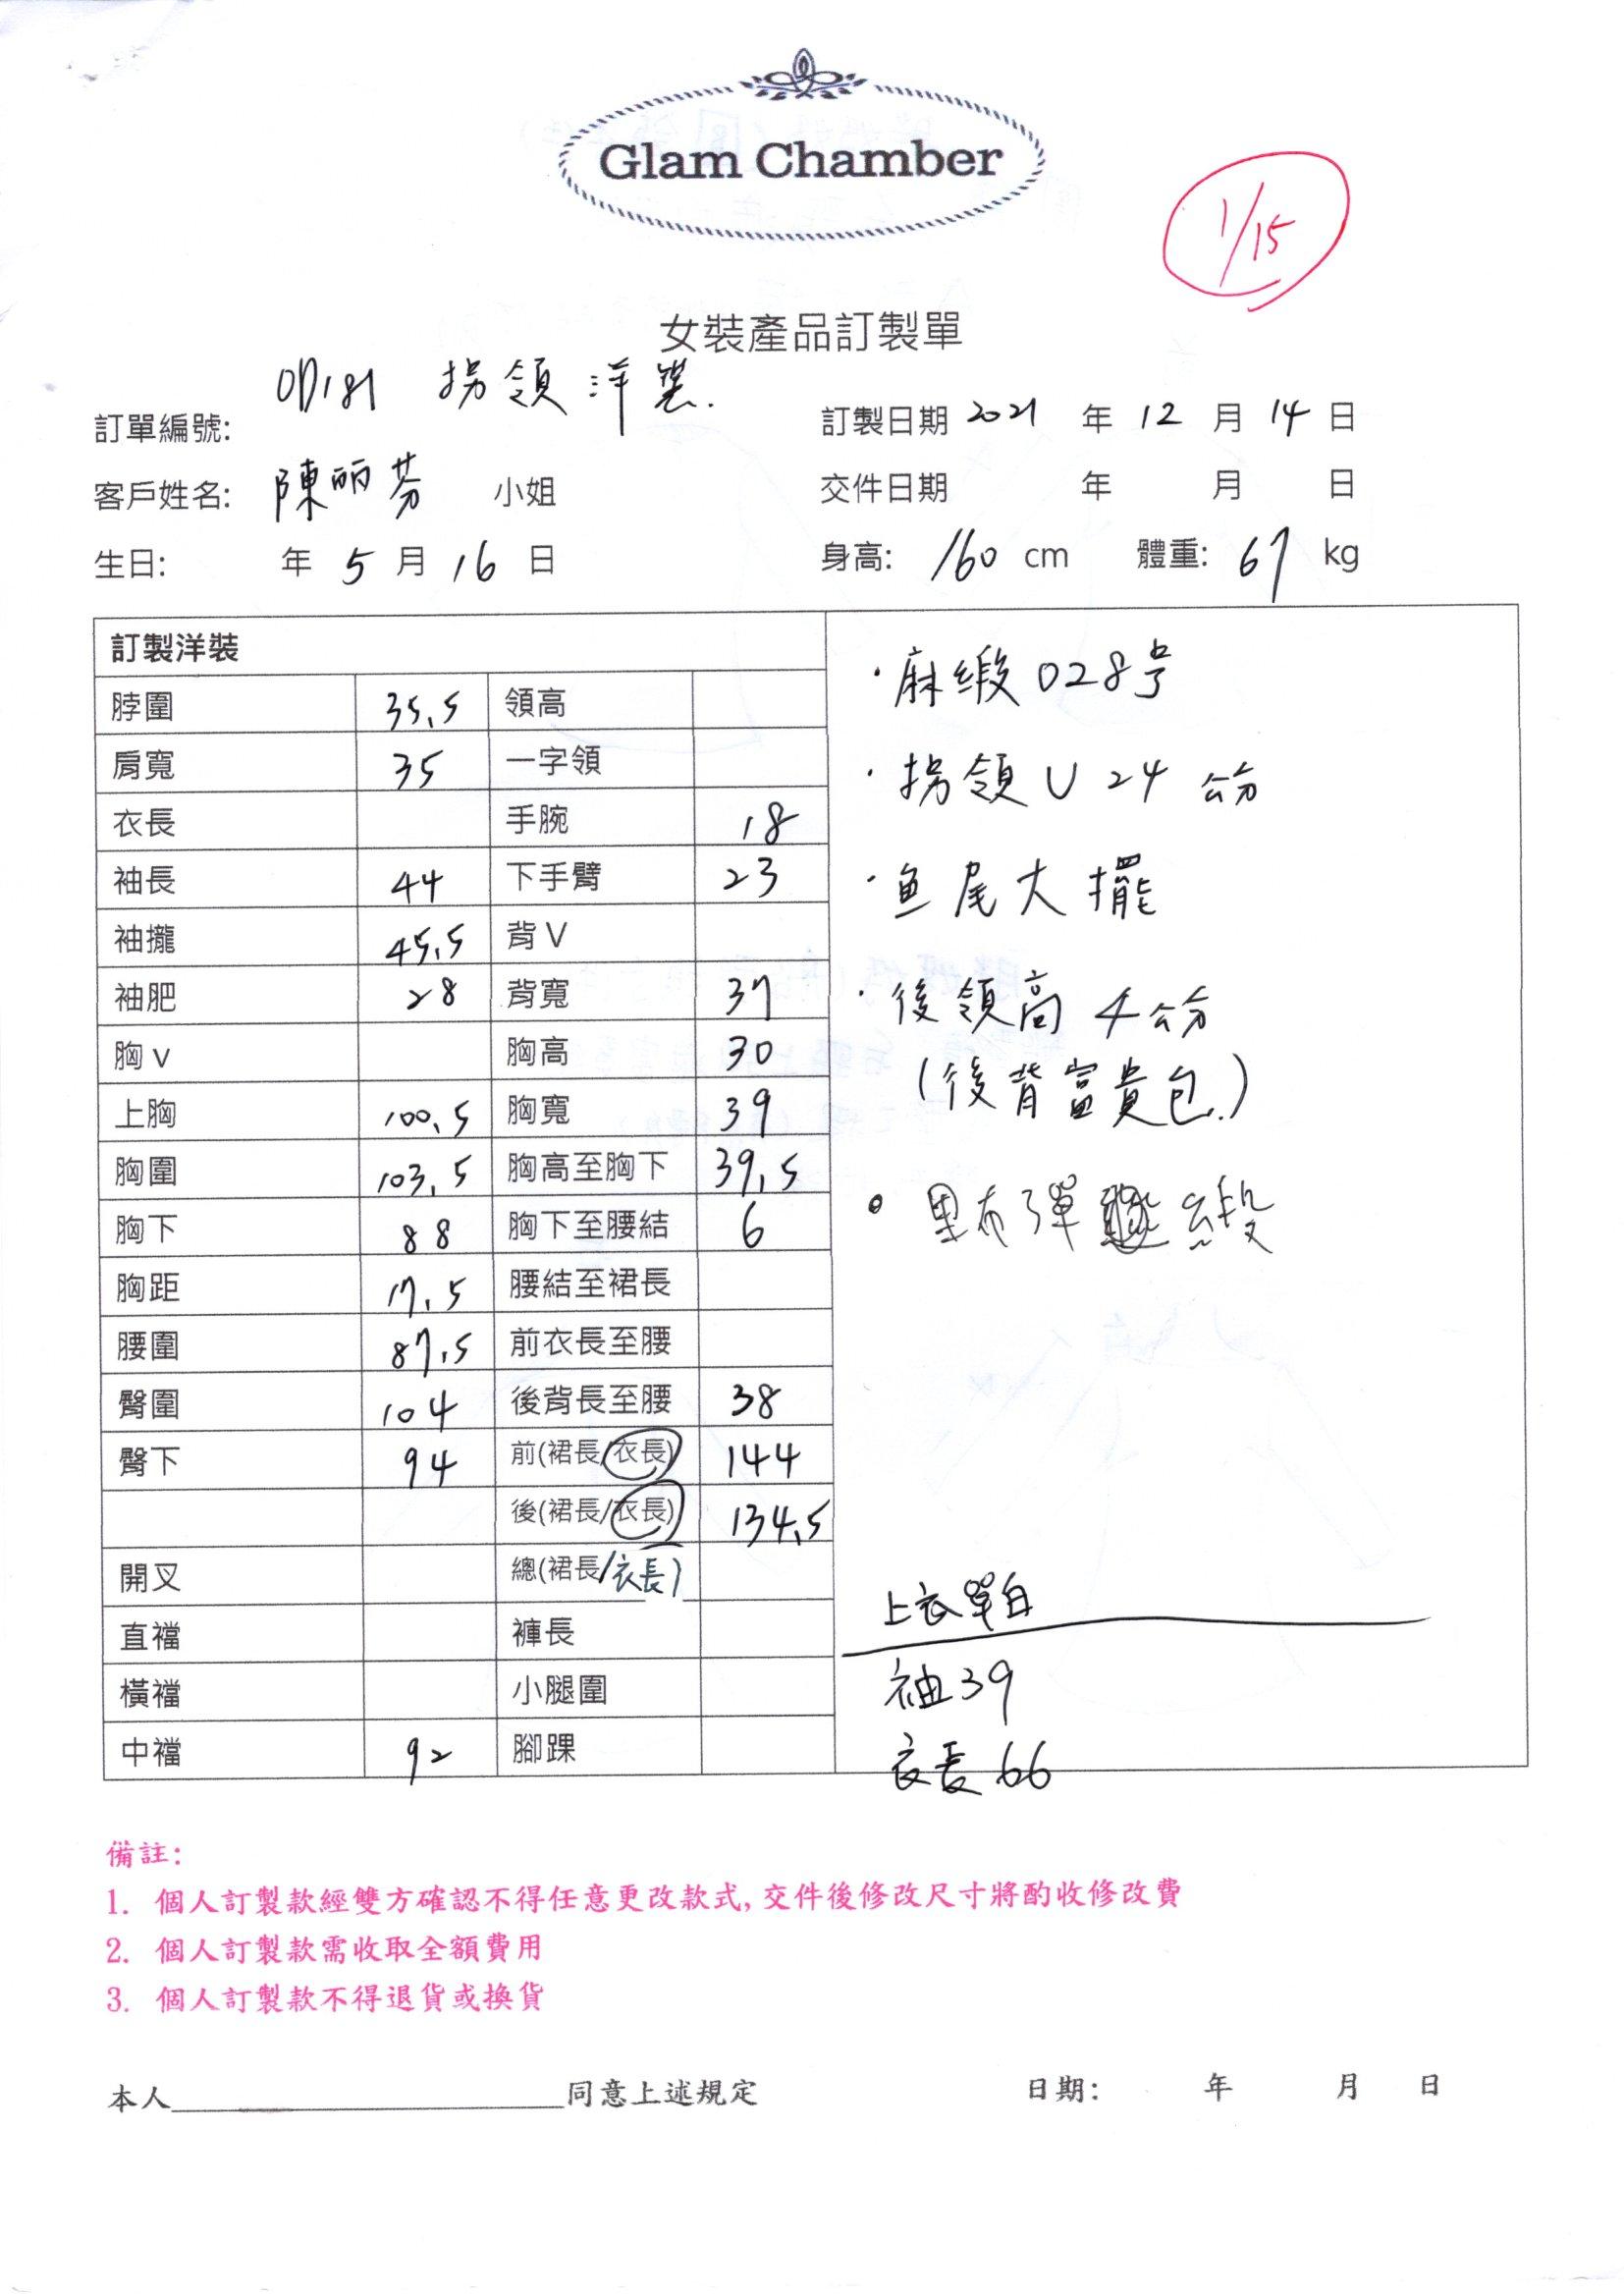 Glam Chamber
1/15
女裝產品訂製單
訂單編號: OD181 拐領洋裝.
訂製日期 2021 年 12 月 14 日
客戶姓名: 陳丽芬 小姐
交件日期 年 月 日
生日: 年 5 月 16 日
身高: 160 cm 體重: 67 kg
訂製洋裝
脖圍 35.5 領高
肩寬 35 一字領
衣長 手腕 18
袖長 44 下手臂 23
袖攏 45.5 背V
袖肥 28 背寬 37
胸v 胸高 30
上胸 100.5 胸寬 39
胸圍 103.5 胸高至胸下 39.5
胸下 88 胸下至腰結 6
胸距 17.5 腰結至裙長
腰圍 87.5 前衣長至腰
臀圍 104 後背長至腰 38
臀下 94 前(裙長/衣長) 144
後(裙長/衣長) 134.5
開叉 總(裙長/衣長)
直襠 褲長
橫襠 小腿圍
中襠 92 腳踝
·麻缎028号
·拐領U 24 公分
·鱼尾大擺
·後領高 4公分
(後背富貴包.)
·里布彈 缎
上衣單白
袖39
衣長66
備註:
1. 個人訂製款經雙方確認不得任意更改款式, 交件後修改尺寸將酌收修改費
2. 個人訂製款需收取全額費用
3. 個人訂製款不得退貨或換貨
本人____________________同意上述規定 日期: 年 月 日